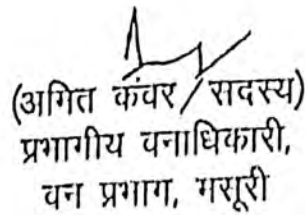 (अगित कंवर / सदस्य)
प्रभागीय वनाधिकारी,
वन प्रभाग, मसूरी